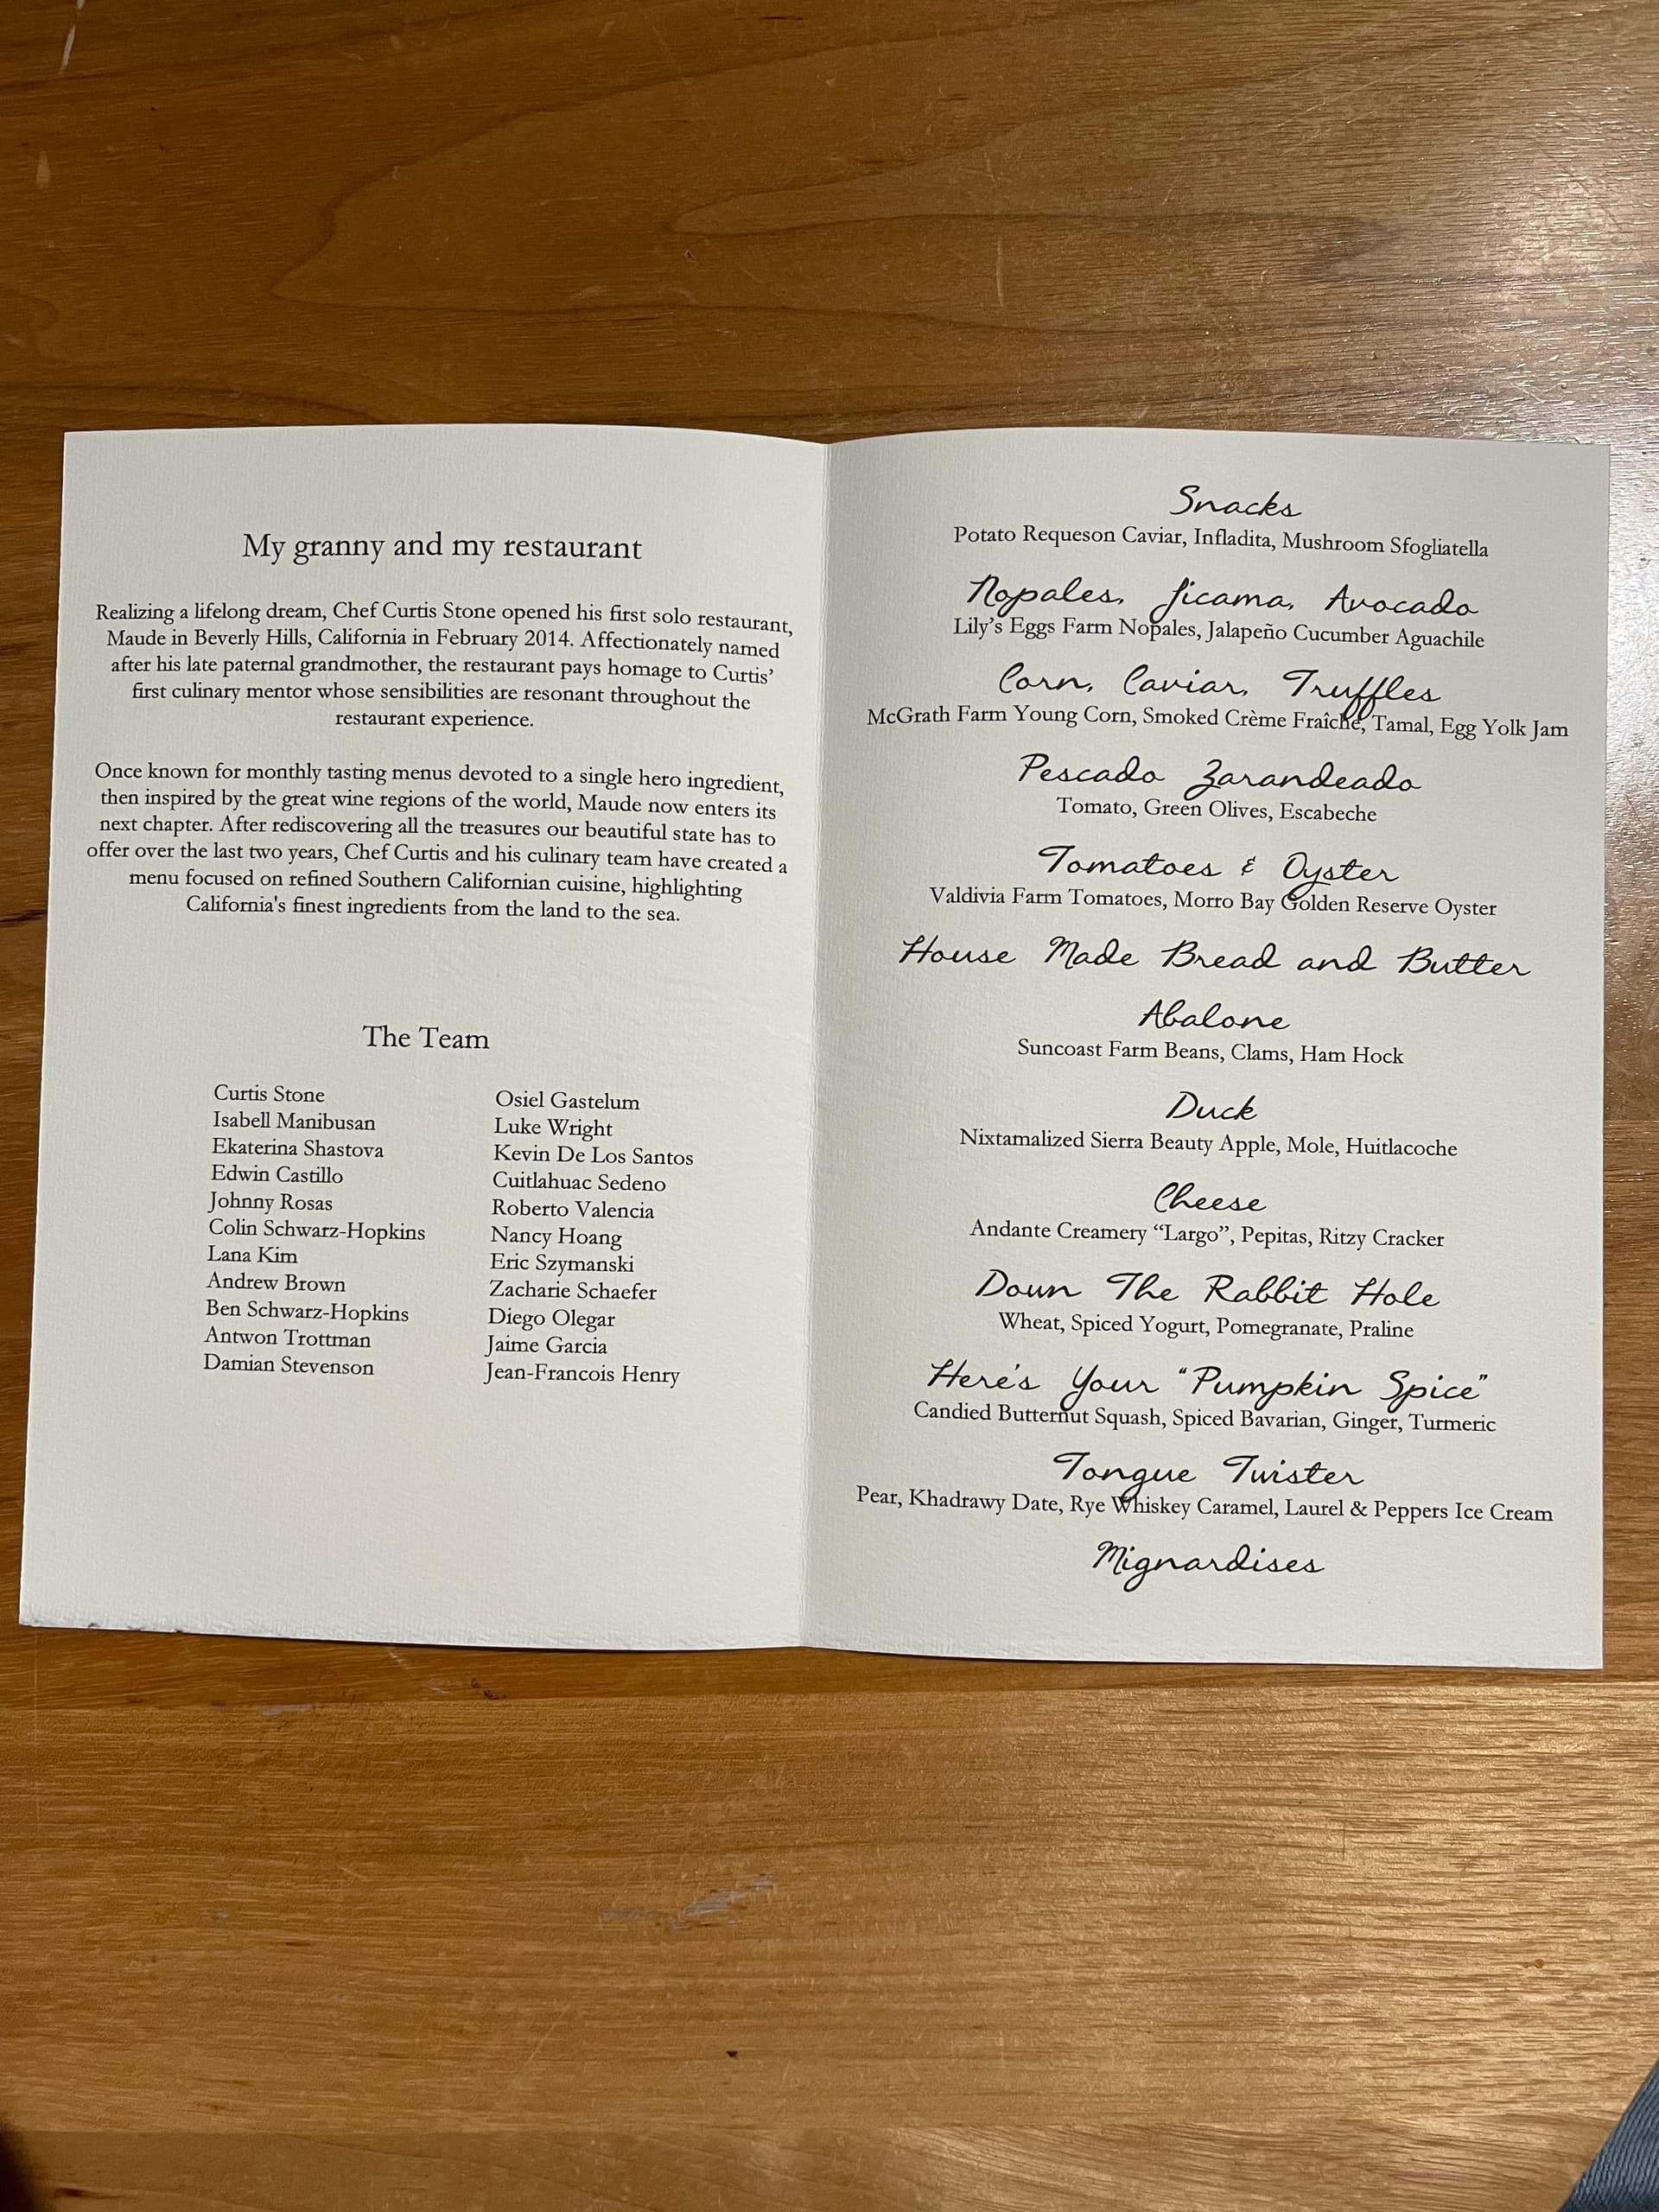 My granny and my restaurant
Realizing a lifelong dream, Chef Curtis Stone opened his first solo restaurant,
Maude in Beverly Hills, California in February 2014. Affectionately named
after his late paternal grandmother, the restaurant pays homage to Curtis’
first culinary mentor whose sensibilities are resonant throughout the
restaurant experience.
Once known for monthly tasting menus devoted to a single hero ingredient,
then inspired by the great wine regions of the world, Maude now enters its
next chapter. After rediscovering all the treasures our beautiful state has to
offer over the last two years, Chef Curtis and his culinary team have created a
menu focused on refined Southern Californian cuisine, highlighting
California's finest ingredients from the land to the sea.
The Team
Curtis Stone
Isabell Manibusan
Ekaterina Shastova
Edwin Castillo
Johnny Rosas
Colin Schwarz-Hopkins
Lana Kim
Andrew Brown
Ben Schwarz-Hopkins
Antwon Trottman
Damian Stevenson
Osiel Gastelum
Luke Wright
Kevin De Los Santos
Cuitlahuac Sedeno
Roberto Valencia
Nancy Hoang
Eric Szymanski
Zacharie Schaefer
Diego Olegar
Jaime Garcia
Jean-Francois Henry
Snacks
Potato Requeson Caviar, Infladita, Mushroom Sfogliatella
Nopales, Jicama, Avocado
Lily’s Eggs Farm Nopales, Jalapeño Cucumber Aguachile
Corn, Caviar, Truffles
McGrath Farm Young Corn, Smoked Crème Fraîche, Tamal, Egg Yolk Jam
Pescado Zarandeado
Tomato, Green Olives, Escabeche
Tomatoes & Oyster
Valdivia Farm Tomatoes, Morro Bay Golden Reserve Oyster
House Made Bread and Butter
Abalone
Suncoast Farm Beans, Clams, Ham Hock
Duck
Nixtamalized Sierra Beauty Apple, Mole, Huitlacoche
Cheese
Andante Creamery “Largo”, Pepitas, Ritzy Cracker
Down The Rabbit Hole
Wheat, Spiced Yogurt, Pomegranate, Praline
Here's Your “Pumpkin Spice”
Candied Butternut Squash, Spiced Bavarian, Ginger, Turmeric
Tongue Twister
Pear, Khadrawy Date, Rye Whiskey Caramel, Laurel & Peppers Ice Cream
Mignardises